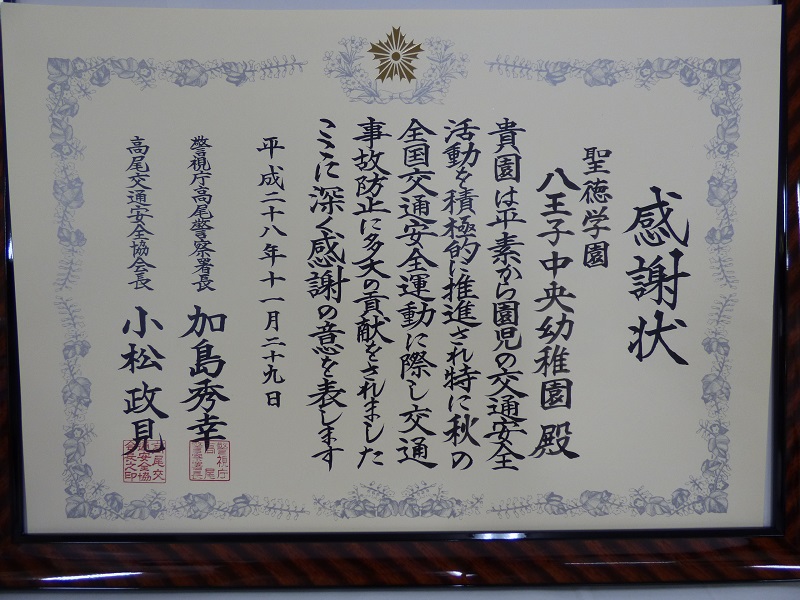 感謝状
聖徳学園
八王子中央幼稚園殿
貴園は平素から園児の交通安全
活動を積極的に推進され特に秋の
全国交通安全運動に際し交通
事故防止に多大の貢献をされました
ここに深く感謝の意を表します
平成二十八年十一月二十九日
警視庁高尾警察署長
加島秀幸
高尾交通安全協会長
小松政見